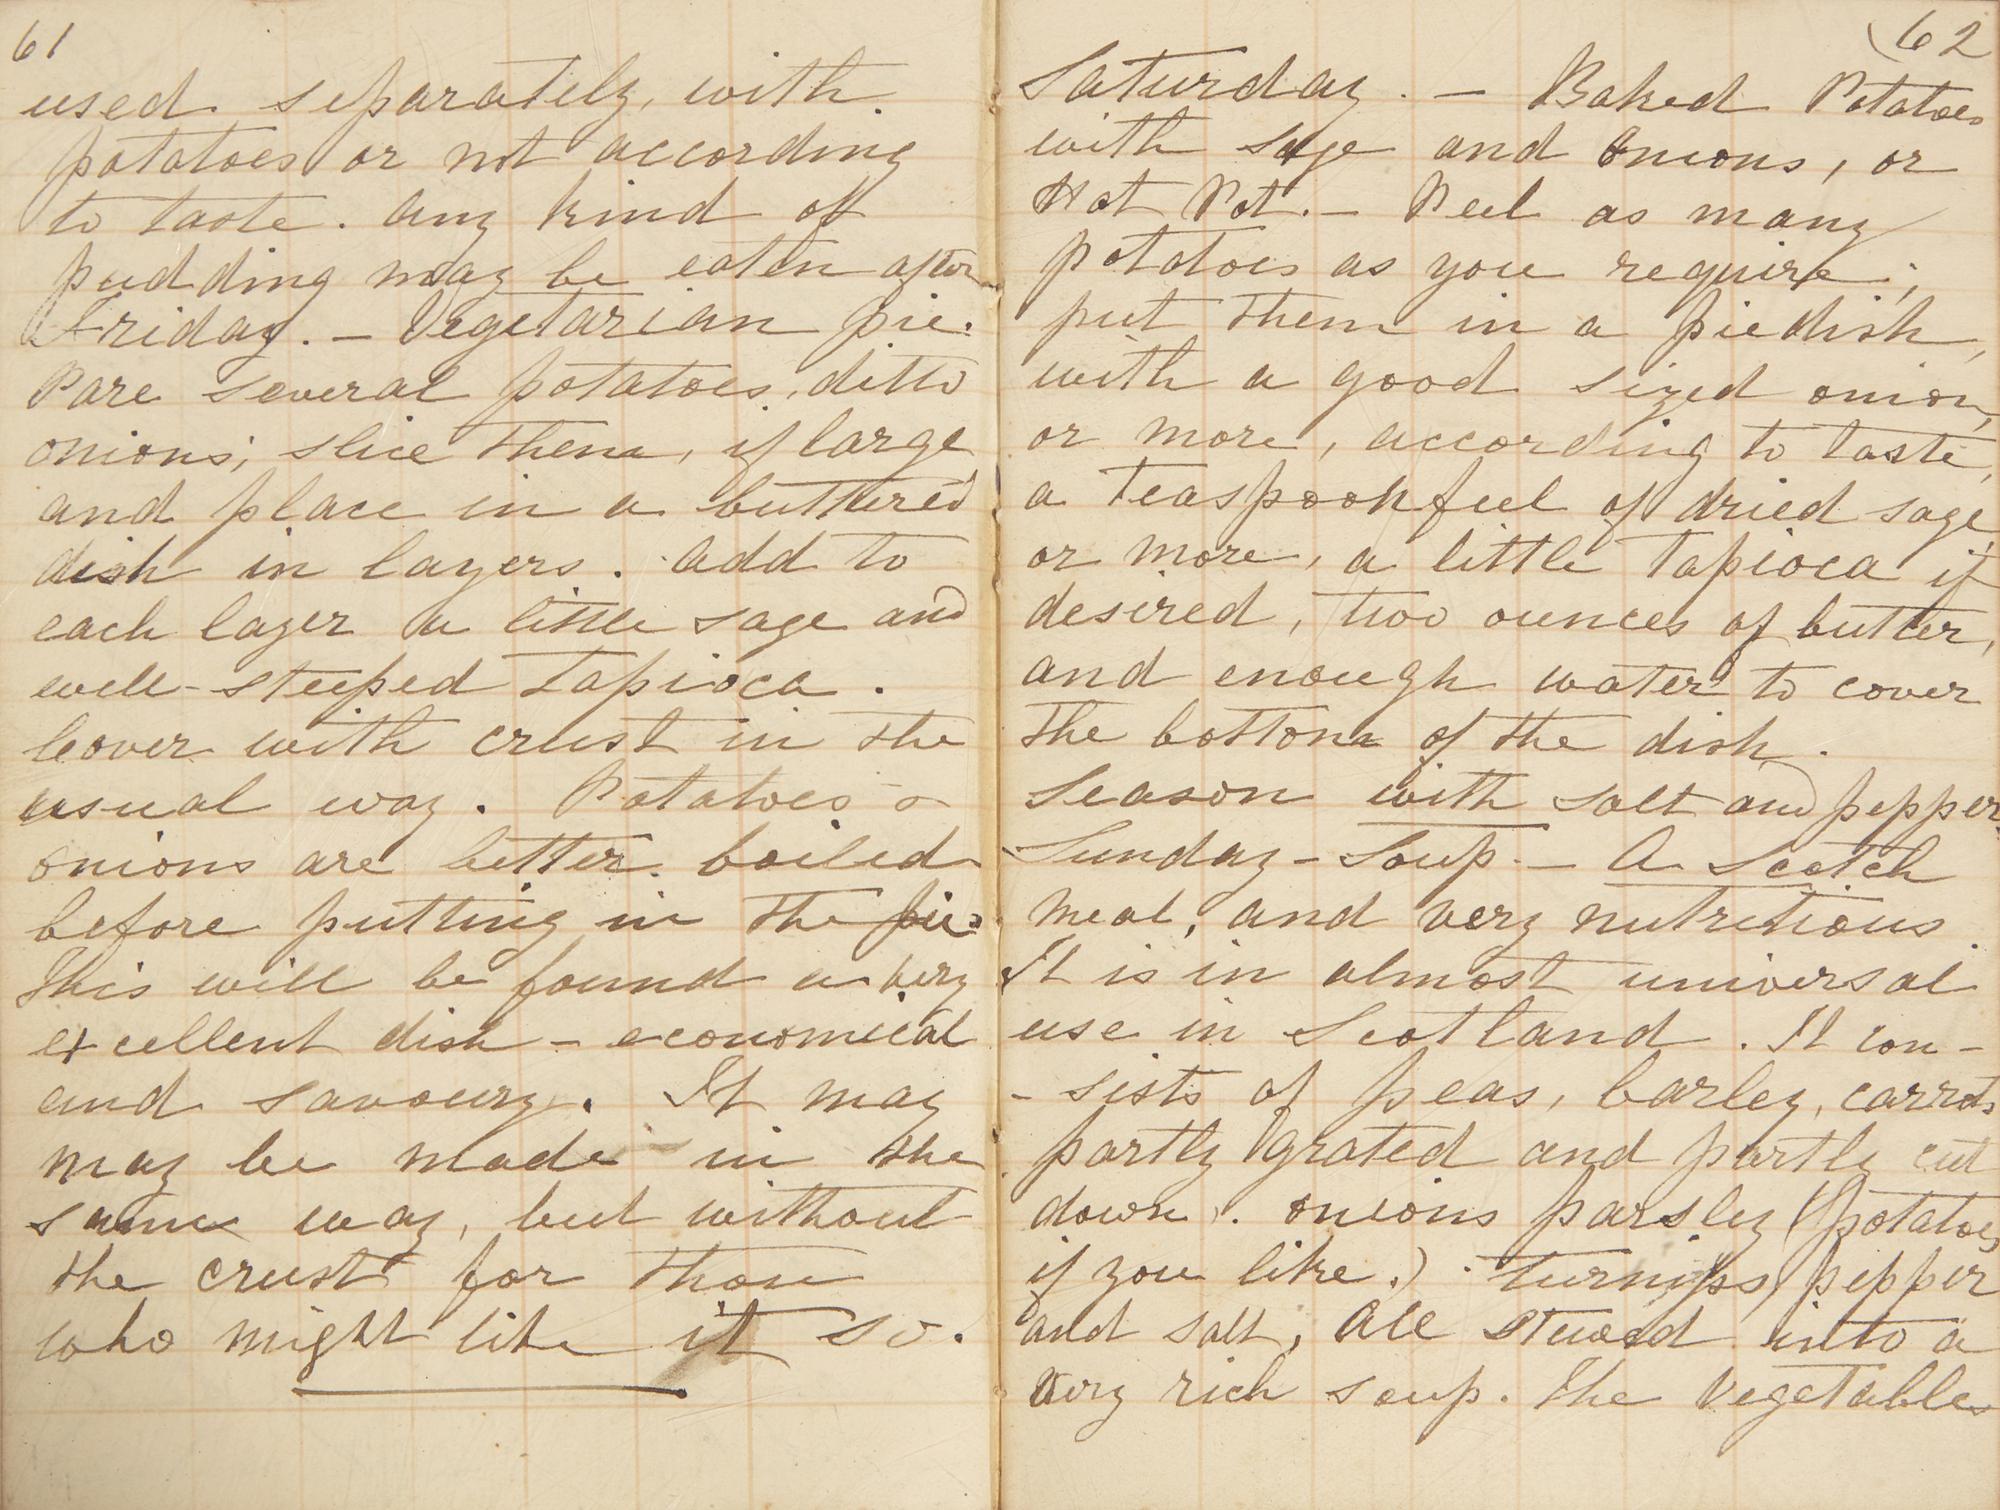 61
used separately, with
potatoes or not according
to taste. Any kind of
pudding may be eaten after
Friday. — Vegetarian pie.
Pare several potatoes, ditto
onions; slice them, if large
and place in a buttered
dish in layers. Add to
each layer a little sage and
well-steeped Tapioca.
Cover with crust in the
usual way. Potatoes &
onions are better boiled
before putting in the pie.
This will be found a very
excellent dish — economical
and savoury. It may
may be made in the
same way, but without
the crust for those
who might like it so.
62
Saturday. — Baked Potatoes
with sage and onions, or
Hot Pot. — Peel as many
potatoes as you require;
put them in a piedish,
with a good sized onion,
or more, according to taste,
a teaspoonful of dried sage,
or more, a little tapioca if
desired, two ounces of butter,
and enough water to cover
the bottom of the dish.
Season with salt and pepper.
Sunday — Soup — A Scotch
meal, and very nutritious.
It is in almost universal
use in Scotland. It con-
- sists of peas, barley, carrots
partly grated and partly cut
down. onions parsley (potatoes
if you like.) Turnips, pepper
and salt, All stewed into a
very rich soup. The Vegetables